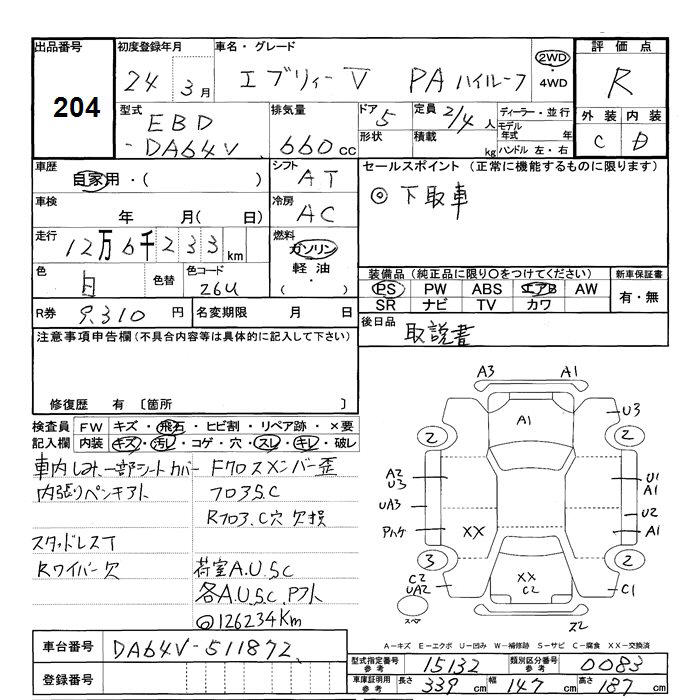 出品番号
204
初度登録年月
24年3月
車名・グレード
エブリィーV PA ハイルーフ
2WD
・4WD
評価点
R
外装 内装
C D
型式
EBD
-DA64V
排気量
660cc
ドア 5
形状
定員 2/4人
積載 kg
ディーラー・並行
モデル年式 年
ハンドル 左・右
車歴
自家用・( )
シフト
AT
セールスポイント (正常に機能するものに限ります)
◎下取車
車検
年 月( 日)
冷房
AC
走行
12万6千233km
燃料
ガソリン
・
軽油
・
( )
色
白
色替
色コード
26U
装備品(純正品に限り○をつけてください)
PS PW ABS エアB AW
SR ナビ TV カワ
新車保証書
有・無
R券 9,310円
名変期限 月 日
後日品
取説書
注意事項申告欄(不具合内容等は具体的に記入して下さい)
修復歴 有 〔箇所 〕
検査員
記入欄
FW キズ・飛石・ヒビ割・リペア跡・×要
内装 キズ・汚レ・コゲ・穴・スレ・キレ・破レ
車内しみ、一部シートカバー
内張りペンキアト
スタッドレスT
Rワイパー欠
Fクロスメンバー歪
フロアS.C
Rフロア.C穴 欠損
荷室A.U.S.C
各A.U.S.C.Pアト
◎126234Km
A3 A1
A1
U3
2 2
A2
U3
UA3
Pハケ
XX
U1
A1
U2
A1
3 2
C2
UA2
XX
C2
C1
スペア
ズ2
A−キズ E−エクボ U−凹み W−補修跡 S−サビ C−腐食 XX−交換済
車台番号 DA64V-511872
登録番号
型式指定番号
参考
15132
類別区分番号
参考
0083
車庫証明用
参考
長さ 339cm 幅 147cm 高さ 187cm